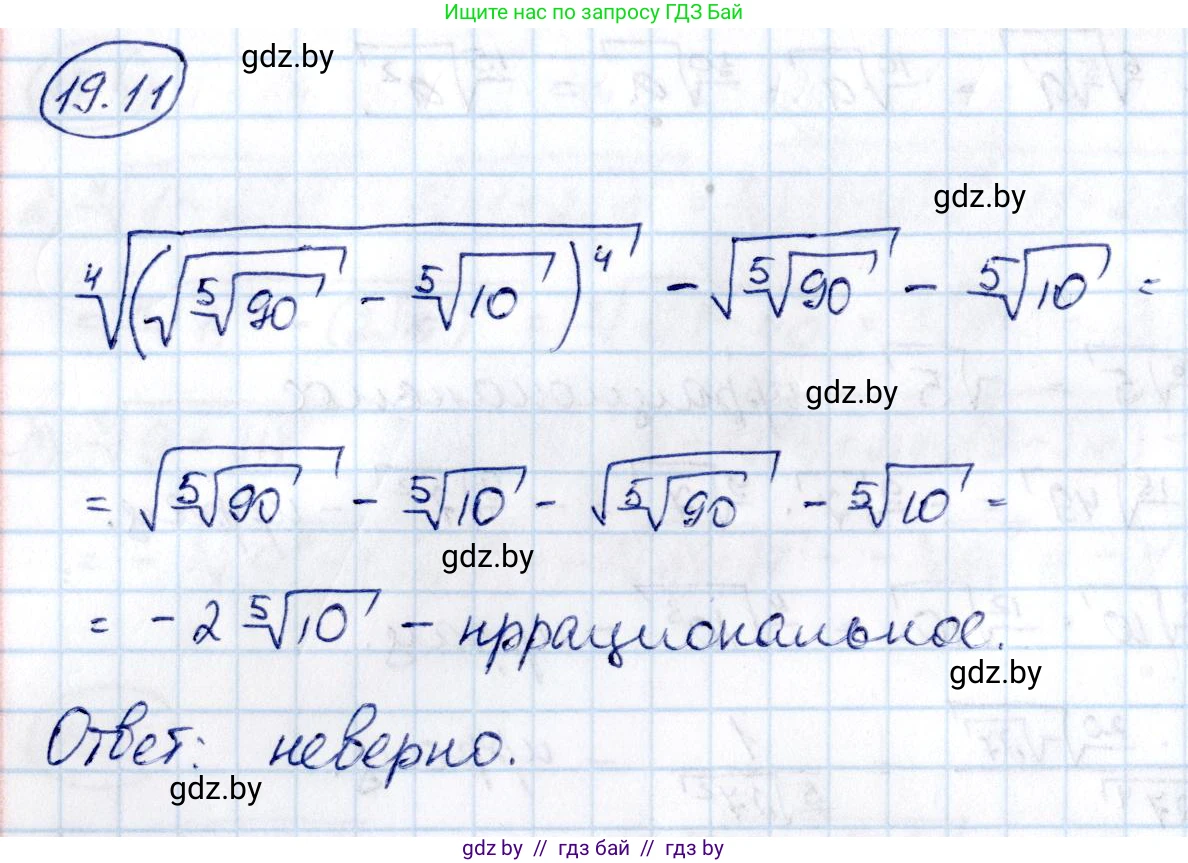 Ищите нас по запросу ГДЗ Бай
19.11
gdz.by
gdz.by
⁴√((√(⁵√90) - ⁵√10)⁴) - √(⁵√90) - ⁵√10 =
gdz.by
= √(⁵√90) - ⁵√10 - √(⁵√90) - ⁵√10 =
gdz.by
= -2 ⁵√10 - иррациональное.
gdz.by
Ответ: неверно.
gdz.by
gdz.by // гдз бай // гдз by